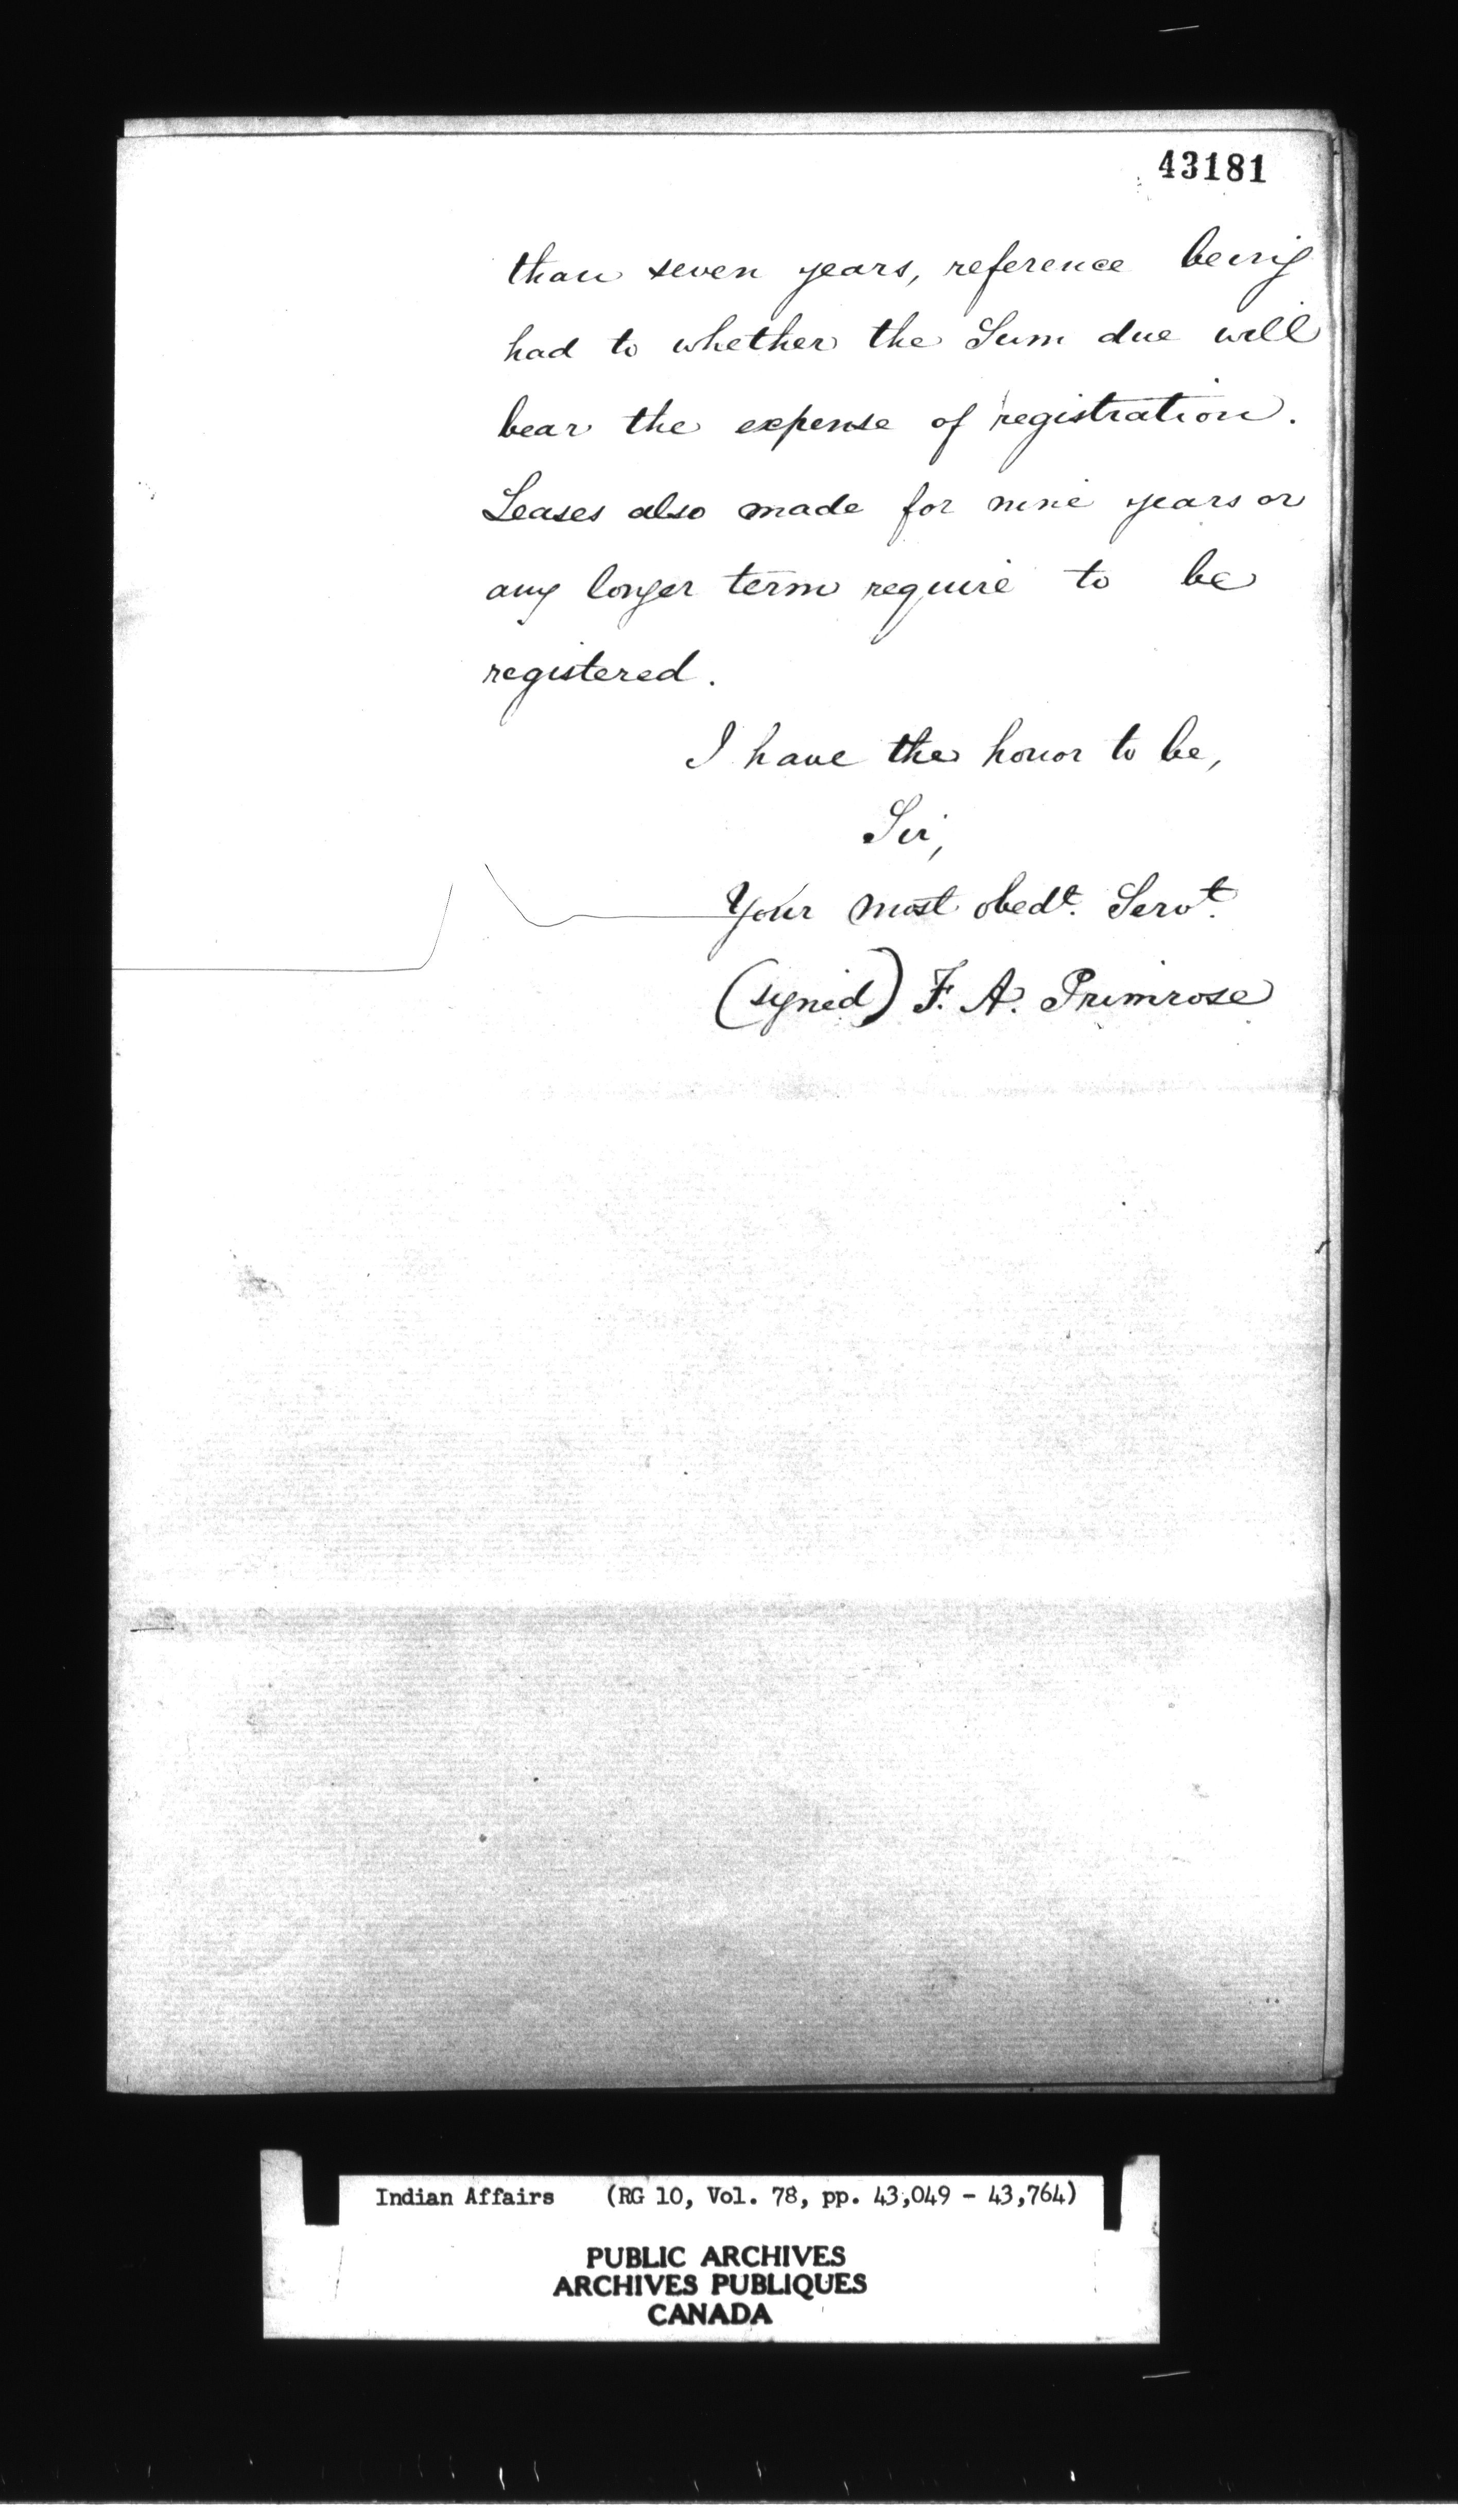 43181
than seven years, reference being
had to whether the Sum due will
bear the expense of registration.
Leases also made for nine years or
any longer term require to be
registered.
I have the honor to be,
Sir,
Your most obedt. Servt.
(signed) F. A. Primrose
Indian Affairs (RG 10, Vol. 78, pp. 43,049 - 43,764)
PUBLIC ARCHIVES
ARCHIVES PUBLIQUES
CANADA